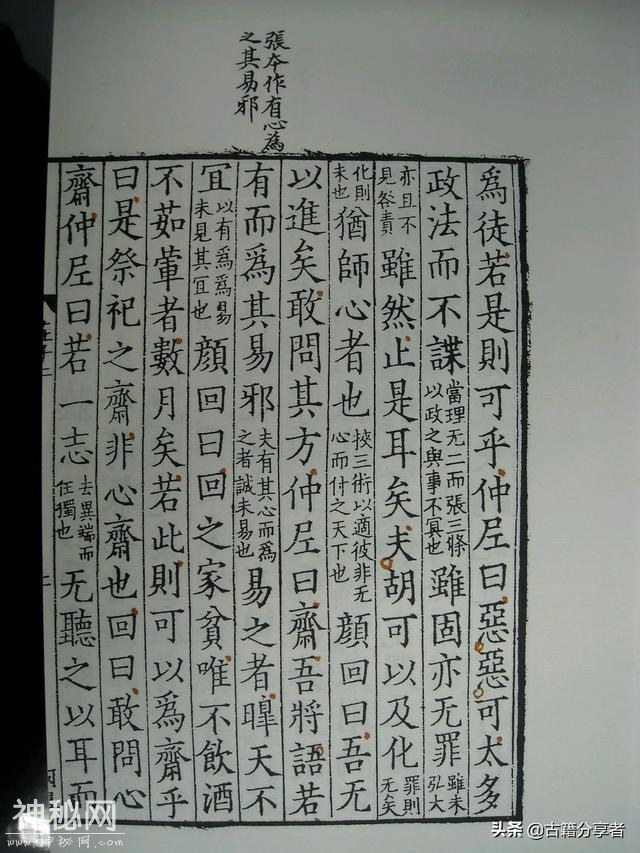 張本作有心爲
之其易邪
爲徒若是則可乎仲尼曰惡惡可太多
政法而不諜當理无二而張三條以政之與事不冥也雖固亦无罪雖未弘大
亦且不見咎責雖然止是耳矣夫胡可以及化罪則无矣
化則未也猶師心者也挾三術以適彼非无心而付之天下也顔回曰吾无
以進矣敢問其方仲尼曰齋吾將語若
有而爲其易邪夫有其心而爲之者誠未易也易之者暭天不
宜以有爲爲易未見其宜也顔回曰回之家貧唯不飲酒
不茹葷者數月矣若此則可以爲齋乎
曰是祭祀之齋非心齋也回曰敢問心
齋仲尼曰若一志去異端而任獨也无聽之以耳而
神秘网
www.神秘网.com
头条 @古籍分享者